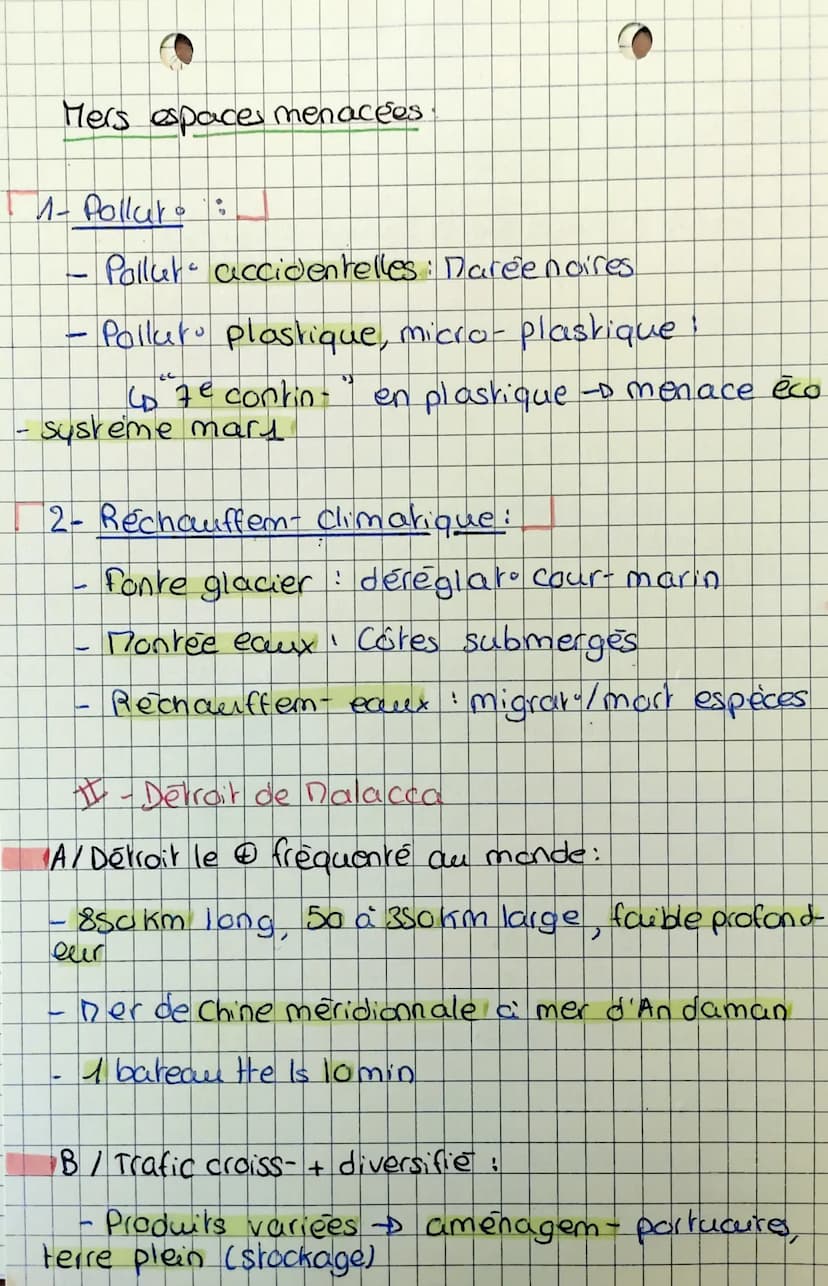 Mers espaces menacées.
1- Pollut° :
- Pollut° accidentelles : Marée noires
- Pollut° plastique, micro-plastique :
↳ "7e contin-" en plastique → menace éco
- système mar1
2- Réchauffem- climatique :
- Fonte glacier : déréglat° cour- marin
- Montée eaux : Côtes submergés
- Réchauffem- eaux : migrat°/mort espèces
II - Détroit de Malacca
A/ Détroit le ⊕ fréquenté au monde :
- 850 km long, 50 à 350 km large, faible profond-
eur
- Mer de Chine méridionnale à mer d'Andaman
- 1 bateau tte ls 10 min
B / Trafic croiss- + diversifié :
- Produits variées → aménagem- portuaires,
terre plein (stockage)